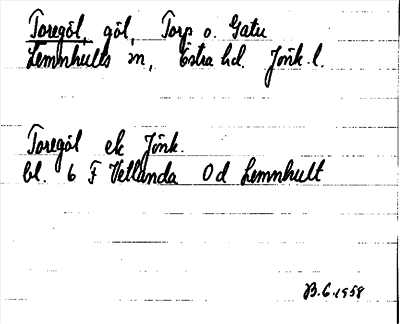 Toregöl, göl, Torp o. Gatu
Lemnhults sn, Östra hd. Jönk. l.
Toregöl ek Jönk.
bl. 6 F Vetlanda Od Lemnhult
B.G. 1958